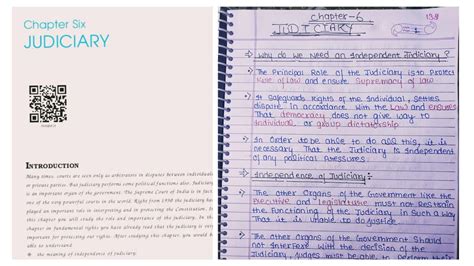 Chapter Six
JUDICIARY
INTRODUCTION
Many times, courts are seen only as arbitrators in disputes between individuals
or private parties. But judiciary performs some political functions also. Judiciary
is an important organ of the government. The Supreme Court of India is in fact,
one of the very powerful courts in the world. Right from 1950 the judiciary has
played an important role in interpreting and in protecting the Constitution. In
this chapter you will study the role and importance of the judiciary. In the
chapter on fundamental rights you have already read that the judiciary is very
important for protecting our rights. After studying this chapter, you would be
able to understand
the meaning of independence of judiciary;
Chapter-6
JUDICIARY
Why do We Need an Independent Judiciary?
The Principal Role of the Judiciary is to Protect
Rule of Law and ensure Supremacy of law
It Safeguards Rights of the Individual, Settles
dispute in accordance with the Law and ensures
That democracy does not give way to
Individual or group dictatorship
In Order to be able to do all this, it is
necessary That the Judiciary Is Independent
of any political Pressures.
Independence of Judiciary:-
The other Organs of the Government like the
Executive and legislature must not Restrain
the Functioning of the Judiciary in Such a Way
That it is unable to do Justice
The other Organs of the Government Should
not Interfere with the decision of the
Judiciary, Judges must be able to Perform their